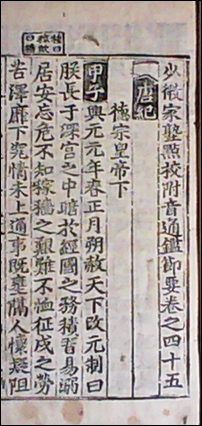 少微家塾點校附音通鑑節要卷之四十五
唐紀
德宗皇帝下
甲子興元元年春正月朔赦天下改元制曰
朕長于深宮之中暗於經國之務積習易溺
居安忘危不知稼穡之艱難不恤征戍之勞
苦澤靡下究情未上通事既壅隔人懷疑阻